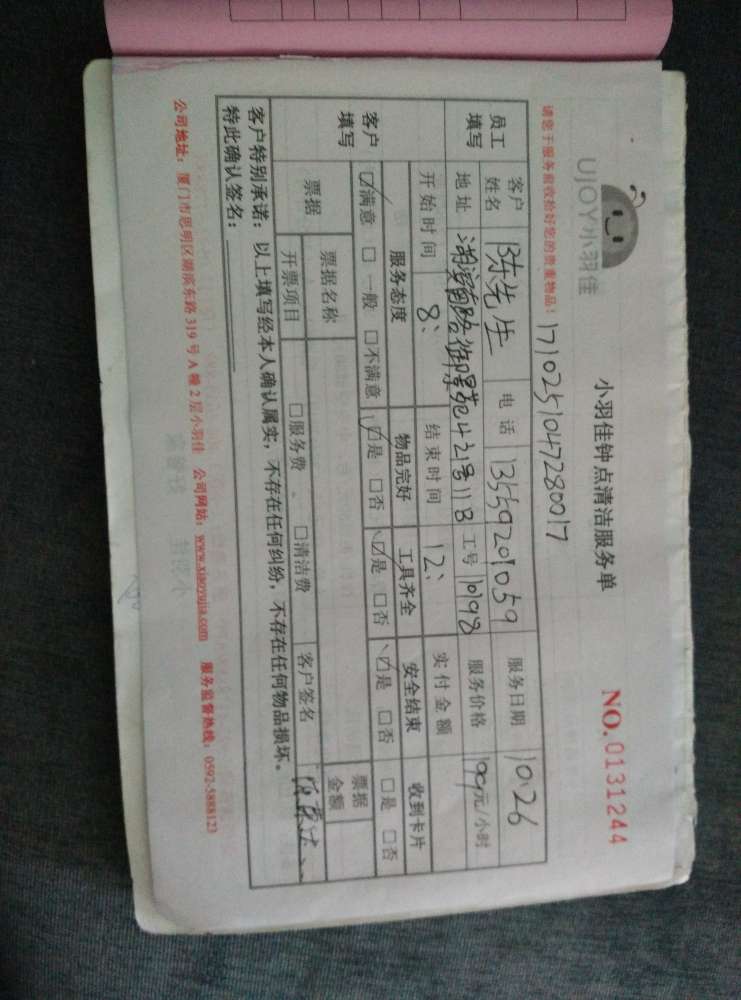 UJOY小羽佳
小羽佳钟点清洁服务单
NO.0131244
请您于服务前收拾好您的贵重物品: 171025104728001７
员工填写 客户姓名 陈先生 电话 13559201059 服务日期 10.26
地址 湖滨南路御景苑42号11B 工号 10198 服务价格 元/小时
开始时间 8: 结束时间 12: 实付金额
客户填写 服务态度 物品完好 工具齐全 安全结束 收到卡片
☑满意 □一般 □不满意 ☑是 □否 ☑是 □否 ☑是 □否 □是 □否
票据 票据名称 票据金额
开票项目 □服务费、□清洁费 客户签名
客户特别承诺：以上填写经本人确认属实，不存在任何纠纷，不存在任何物品损坏。
特此确认签名：
公司地址：厦门市思明区湖滨东路319号A幢2层小羽佳 公司网站：www.xiaoyujia.com 服务监督热线：0592-5888123